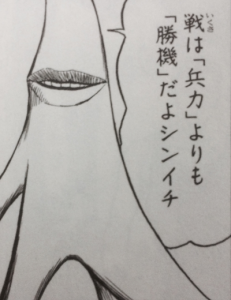 戦は「兵力」よりも
「勝機」だよシンイチ